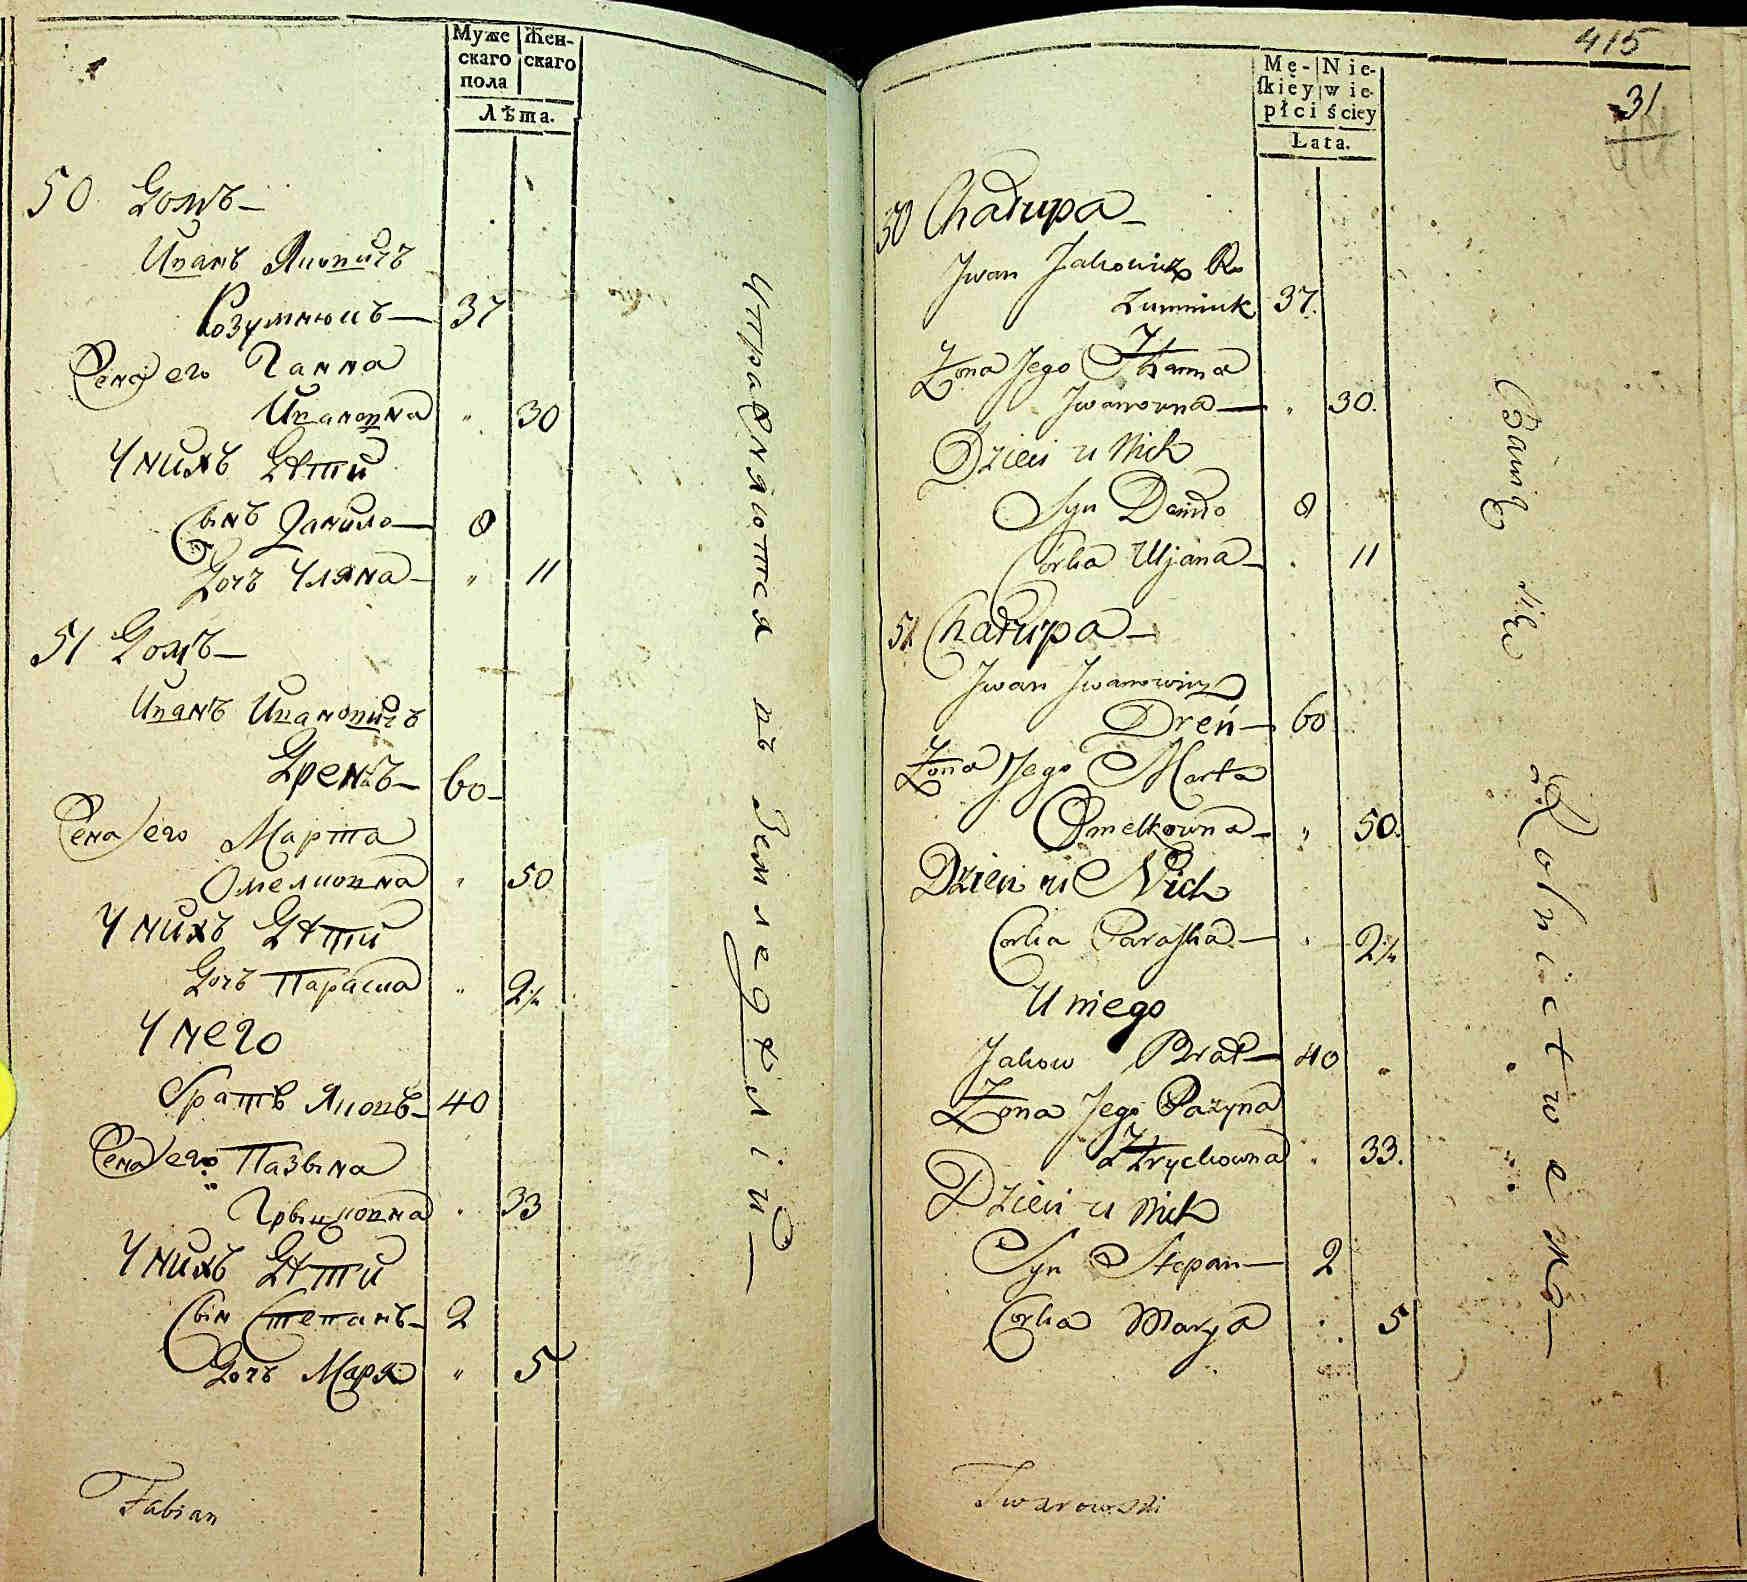 Муже Жен-
скаго скаго
пола
Лѣта.
50 Домъ—
Иванъ Яковичъ
Розумнюкъ— 37
Жена его Ганна
Ивановна „ 30
У нихъ Дѣти
Сынъ Данило— 8
Дочъ Уляна— „ 11
51 Домъ—
Иванъ Ивановичъ
Дрень— 60—
Жена его Марта
Омелковна „ 50
У нихъ Дѣти
Дочъ Параска „ 2½
У него
Братъ Яковъ— 40
Жена его Пазына
Грыцковна „ 33
У нихъ Дѣти
Сын Степанъ— 2
Дочъ Маря „ 5
Fabian
Управляются въ Земледѣлій—
415
31
Mę- Nie-
ſkiey wie-
płci ściey
Lata.
50 Chałupa—
Jwan Jakowicz Ro
zumniuk 37.
Żona Jego Hanna
Jwanowna— „ 30.
Dzieci u Nich
Syn Daniło 8
Corka Uljana— „ 11
51 Chałupa—
Jwan Jwanowicz
Dreń— 60
Żona Jego Marta
Omelkowna— „ 50.
Dzieci u Nich
Corka Paraſka— „ 2½
U niego
Jakow Brat— 40 „
Żona Jego Pazyna
Hryckowna „ 33.
Dzieci u Nich
Syn Stepan— 2
Corka Marya „ 5
Twarowski
Bawią się Rolnictwem—